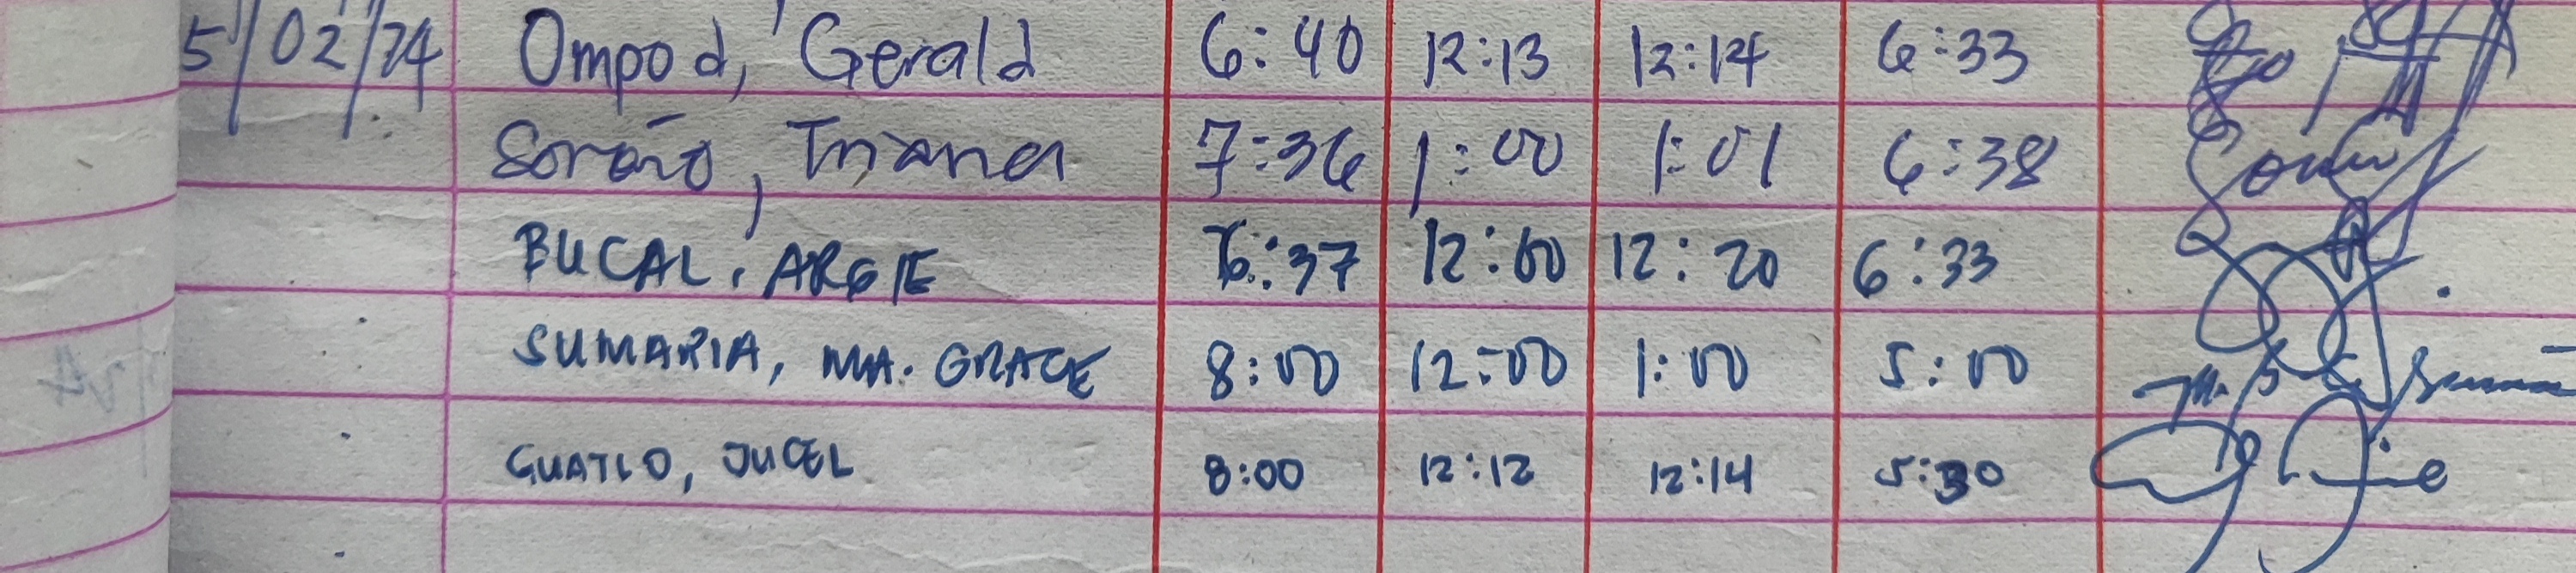 5/02/24 Ompod, Gerald 6:40 12:13 12:14 6:33
7:36 1:00 1:01 6:38
BUCAL, ARGIE 6:37 12:00 12:20 6:33
SUMARIA, MA. GRACE 8:00 12:00 1:00 5:00
GUATLO, JUCEL 8:00 12:12 12:14 5:30